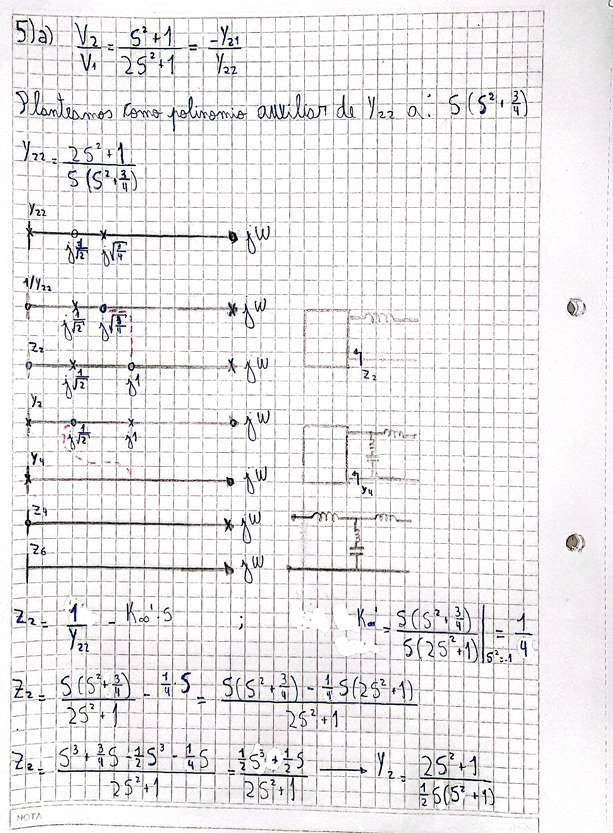 5)a) V2/V1 = (S²+1)/(2S²+1) = -Y21/Y22
Planteamos como polinomio auxiliar de Y22 a: S(S²+3/4)
Y22 = (2S²+1)/(S(S²+3/4))
Y22
j1/√2 j√3/4 jW
1/Y22
j1/√2 j√3/4 jW
Z2
j1/√2 j1 jW
Z2
Y2
j1/√2 j1 jW
Y4
jW
Y4
Z4
jW
Z6
jW
Z2 = 1/Y22 - K∞'·S ; K∞' = S(S²+3/4)/(S(2S²+1)) |S²=-1 = 1/4
Z2 = S(S²+3/4)/(2S²+1) - 1/4 S = (S(S²+3/4) - 1/4 S(2S²+1))/(2S²+1)
Z2 = (S³+3/4 S - 1/2 S³ - 1/4 S)/(2S²+1) = (1/2 S³ + 1/2 S)/(2S²+1) → Y2 = (2S²+1)/(1/2 S(S²+1))
NOTA